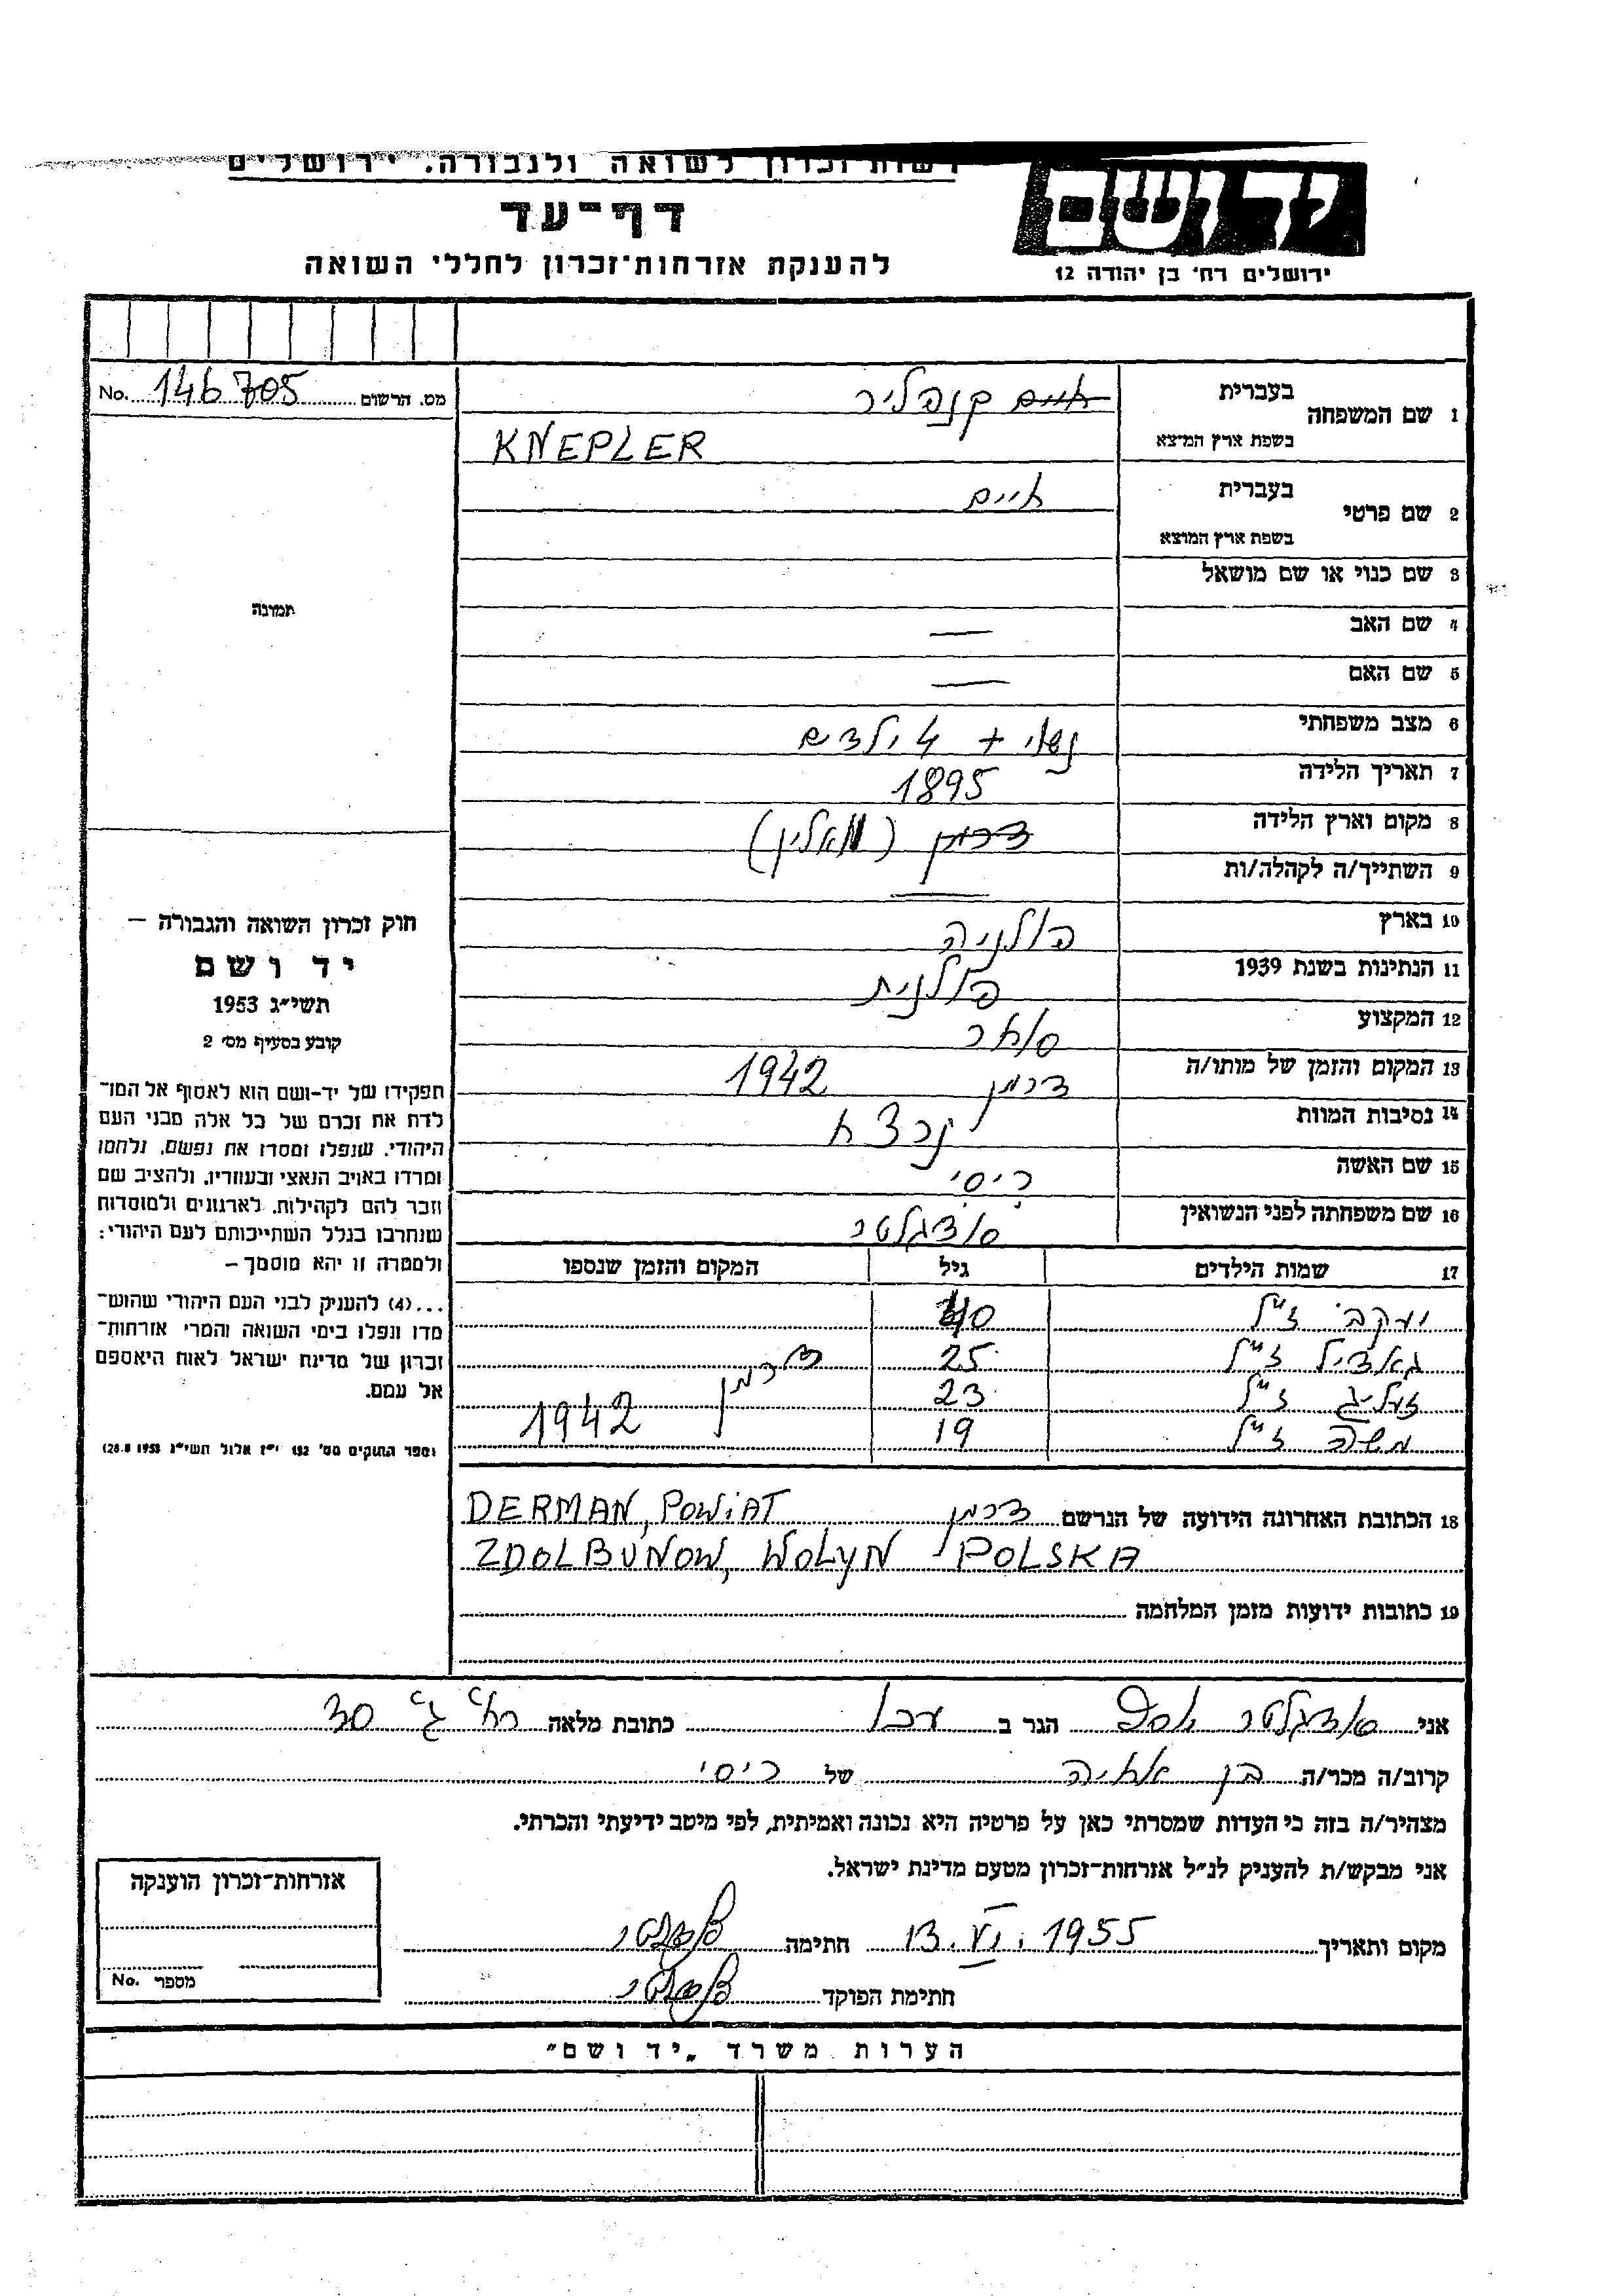 רשות זכרון לשואה ולגבורה. ירושלים
דף-עד
להענקת אזרחות-זכרון לחללי השואה
יד ושם
ירושלים רח' בן יהודה 12
מס. הרשום 146705 No.
1 שם המשפחה
בעברית חיים קנפליר
בשפת ארץ המוצא KNEPLER
2 שם פרטי
בעברית חיים
בשפת ארץ המוצא
3 שם כנוי או שם מושאל
4 שם האב —
5 שם האם —
6 מצב משפחתי נשוי + 4 ילדים
7 תאריך הלידה 1895
8 מקום וארץ הלידה דרמן (וואלין)
9 השתייך/ה לקהלה/ות —
10 בארץ פולניה
11 הנתינות בשנת 1939 פולנית
12 המקצוע סוחר
13 המקום והזמן של מותו/ה דרמן 1942
14 נסיבות המוות נרצח
15 שם האשה ריסי
16 שם משפחתה לפני הנשואין
17 שמות הילדים גיל המקום והזמן שנספו
יעקב ז"ל
ז"ל 25 דרמן
זעליג ז"ל 23
משה ז"ל 19 1942
18 הכתובת האחרונה הידועה של הנרשם דרמן DERMAN, POWIAT
ZDOLBUNOW, WOLYN POLSKA
19 כתובות ידועות מזמן המלחמה
תמונה
חוק זכרון השואה והגבורה —
יד ושם
תשי"ג 1953
קובע בסעיף מס' 2
תפקידו של יד-ושם הוא לאסוף אל המו-
לדת את זכרם של כל אלה מבני העם
היהודי, שנפלו ומסרו את נפשם, נלחמו
ומרדו באויב הנאצי ובעוזריו, ולהציב שם
וזכר להם לקהילות, לארגונים ולמוסדות
שנחרבו בגלל השתייכותם לעם היהודי:
ולמטרה זו יהא מוסמך —
...(4) להעניק לבני העם היהודי שהוש-
מדו ונפלו בימי השואה והמרי אזרחות-
זכרון של מדינת ישראל לאות היאספם
אל עמם.
(ספר החוקים מס' 132 י"ז אלול תשי"ג 28.8.1953)
אני יוסף הגר ב עכו כתובת מלאה רח' ג' 30
קרוב/ה מכר/ה בן אחיה של ריסי
מצהיר/ה בזה כי העדות שמסרתי כאן על פרטיה היא נכונה ואמיתית, לפי מיטב ידיעתי והכרתי.
אני מבקש/ת להעניק לנ"ל אזרחות-זכרון מטעם מדינת ישראל.
מקום ותאריך 13. VI. 1955 חתימה
חתימת הפוקד
אזרחות-זכרון הוענקה
מספר No.
הערות משרד „יד ושם"